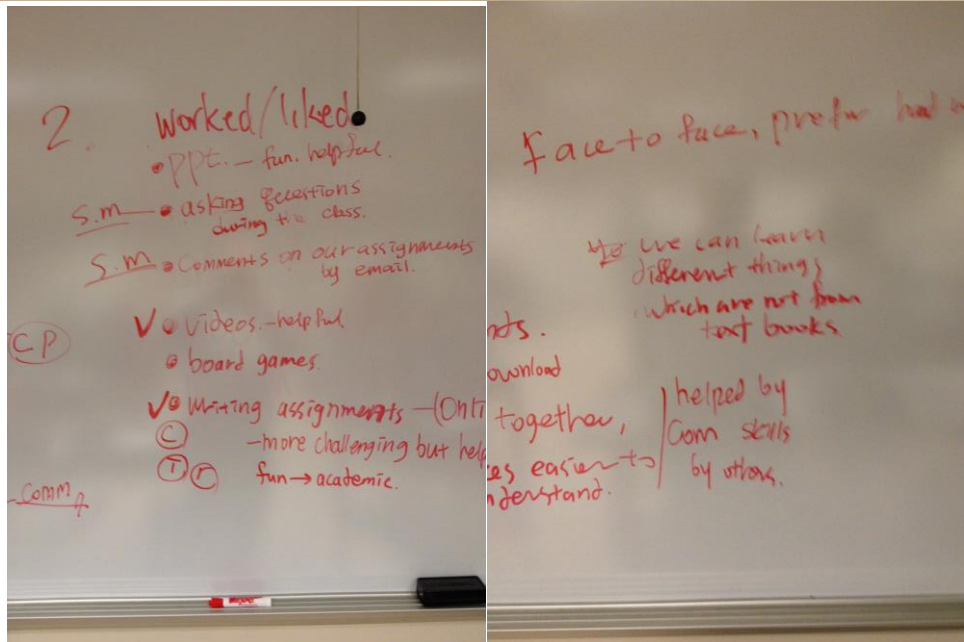 2. worked/liked
• ppt. – fun. helpful.
S.m – • asking questions
during the class.
S.M – • Comments on our assignments
by email.
CP
V • videos. – helpful
• board games.
V • writing assignments – (Onli
C – more challenging but help
T r fun → academic.
Comm
face to face, prefer
we can learn
different things
which are not from
text books.
nts.
ownload
together,
es easier to
nderstand.
helped by
Com skills
by others.